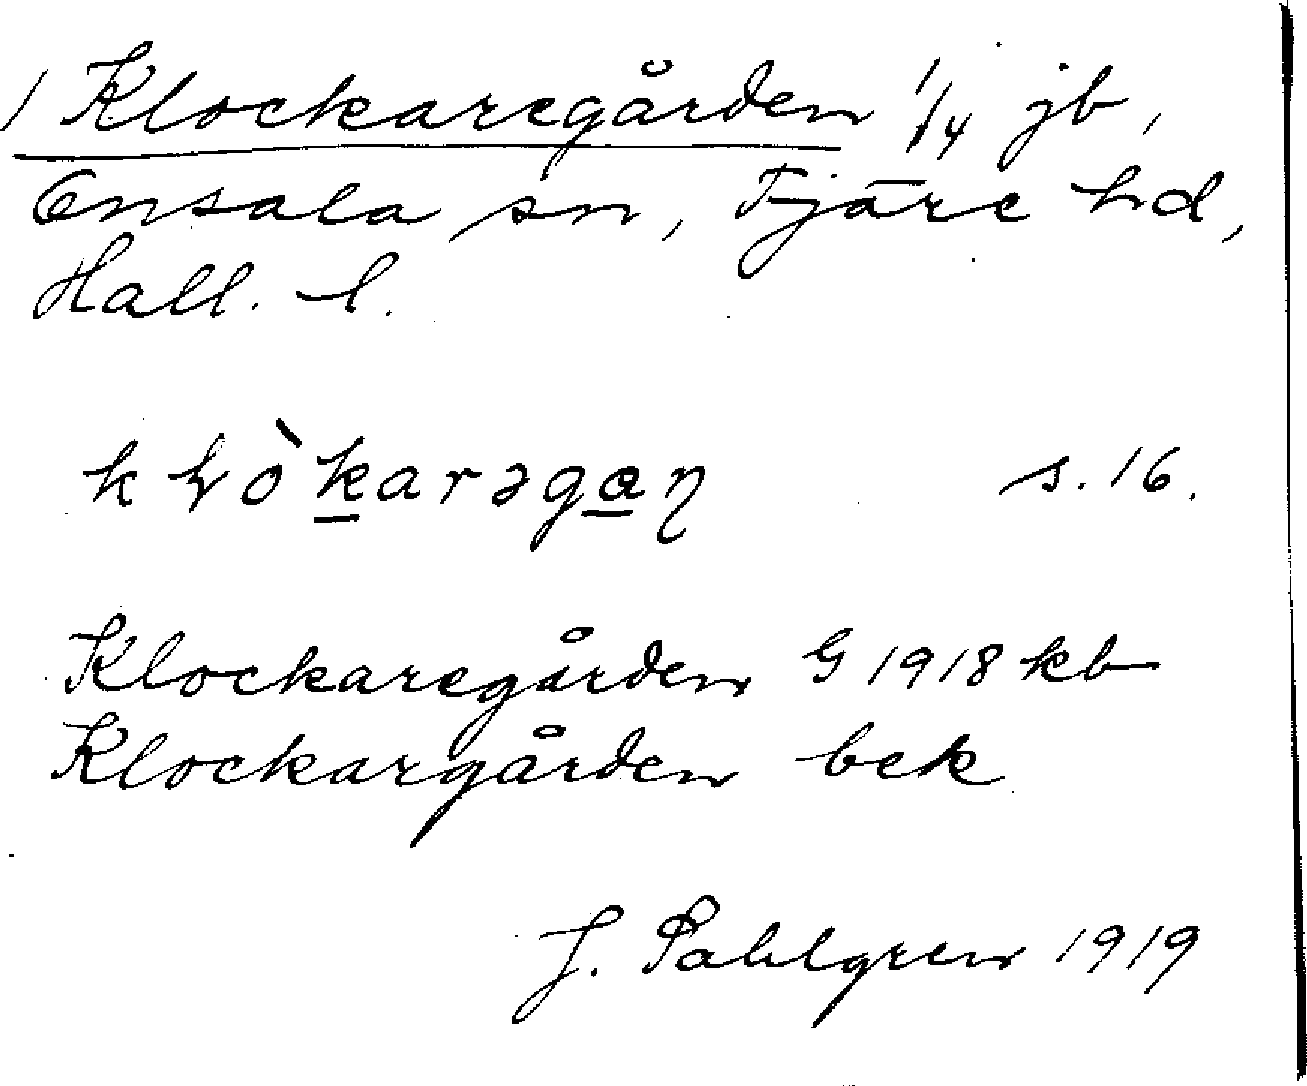 1 Klockaregården 1/4 jb,
Onsala sn, Fjäre hd,
Hall. l.
s. 16.
Klockaregården G 1918 kb
Klockargården bek
J. Sahlgren 1919